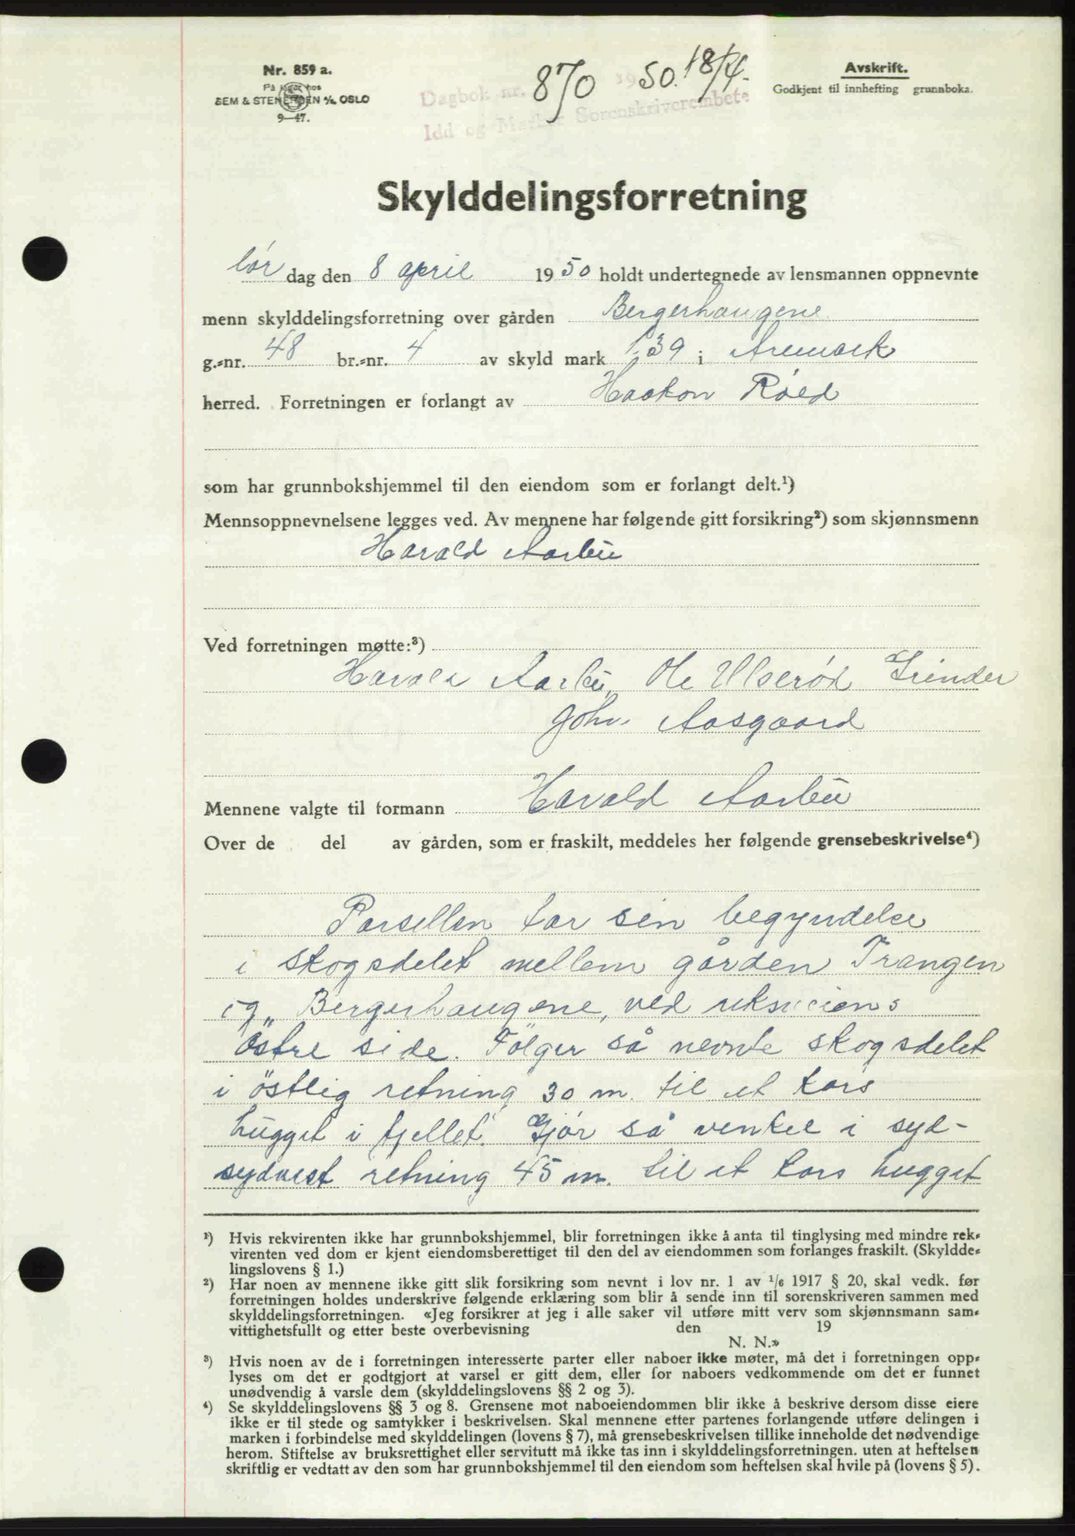 Nr. 859 a.
På lager hos
SEM & STENERSEN A/S, OSLO
9—47.
Dagbok nr. 870 19 50. 18/4.
Idd og Marker Sorenskriverembete
Avskrift.
Godkjent til innhefting i grunnboka.
Skylddelingsforretning
lør dag den 8 april 1950 holdt undertegnede av lensmannen oppnevnte
menn skylddelingsforretning over gården Bergerhaugene
g.-nr. 48 br.-nr. 4 av skyld mark 1,39 i Aremark
herred. Forretningen er forlangt av Haakon Røed
som har grunnbokshjemmel til den eiendom som er forlangt delt.¹)
Mennsoppnevnelsene legges ved. Av mennene har følgende gitt forsikring²) som skjønnsmenn
Harald Aarbu
Ved forretningen møtte:³)
Harald Aarbu, Ole Ulserød Grinder
Joh. Aasgaard
Mennene valgte til formann Harald Aarbu
Over de del av gården, som er fraskilt, meddeles her følgende grensebeskrivelse⁴)
Parsellen tar sin begyndelse
i skogsdelet mellem gården Trangen
og Bergerhaugene, ved riksveiens
østre side. Følger så nevnte skogsdelet
i østlig retning 30 m. til et kors
hugget i fjellet. Gjør så vinkel i syd-
sydvest retning 45 m. til et kors hugget
¹) Hvis rekvirenten ikke har grunnbokshjemmel, blir forretningen ikke å anta til tinglysing med mindre rek-
virenten ved dom er kjent eiendomsberettiget til den del av eiendommen som forlanges fraskilt. (Skyldde-
lingslovens § 1.)
²) Har noen av mennene ikke gitt slik forsikring som nevnt i lov nr. 1 av 1/6 1917 § 20, skal vedk. før
forretningen holdes underskrive følgende erklæring som blir å sende inn til sorenskriveren sammen med
skylddelingsforretningen. «Jeg forsikrer at jeg i alle saker vil utføre mitt verv som skjønnsmann sam-
vittighetsfullt og etter beste overbevisning den 19
N. N.»
³) Hvis noen av de i forretningen interesserte parter eller naboer ikke møter, må det i forretningen opp-
lyses om det er godtgjort at varsel er gitt dem, eller for naboers vedkommende om det er funnet
unødvendig å varsle dem (skylddelingslovens §§ 2 og 3).
⁴) Se skylddelingslovens §§ 3 og 8. Grensene mot naboeiendommen blir ikke å beskrive dersom disse eiere
ikke er til stede og samtykker i beskrivelsen. Skal mennene etter partenes forlangende utføre delingen i
marken i forbindelse med skylddelingen (lovens § 7), må grensebeskrivelsen tillike inneholde det nødvendige
herom. Stiftelse av bruksrettighet eller servitutt må ikke tas inn i skylddelingsforretningen, uten at heftelsen
skriftlig er vedtatt av den som har grunnbokshjemmel til den eiendom som heftelsen skal hvile på (lovens § 5).